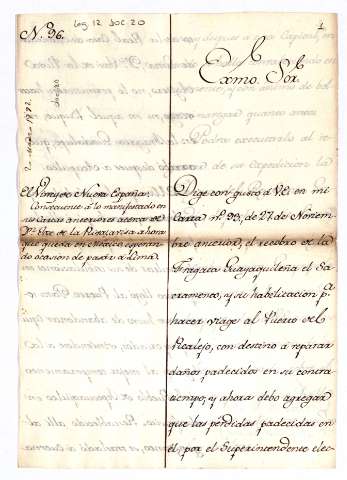 Nº. 96.
Leg 12 DOC. 20
1
Exmo. Sor.
El Virrey de Nueva España.
Consecuente à lo manifestado en
sus Cartas anteriores acerca de
que queda en Mexico esperan-
do ocasion de pasar à Lima
Dige con gusto à VE. en mi
Carta nº. 92, de 27 de Noviem-
bre anterior, el recobro de la
Fragata Guayaquileña el Sa-
cramento, y su habilitacion pª.
hacer viage al Puerto del
Realejo, con destino à reparar
daños padecidos en su contra-
tiempo, y ahora debo agregar
que las pérdidas padecidas en
él por el Superintendente elec-